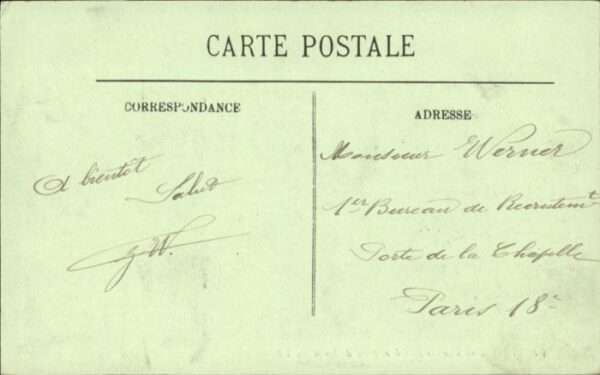 CARTE POSTALE
CORRESPONDANCE
ADRESSE
A bientôt
Salut
Monsieur Werner
1er Bureau de Recrutemt
Porte de la Chapelle
Paris 18e